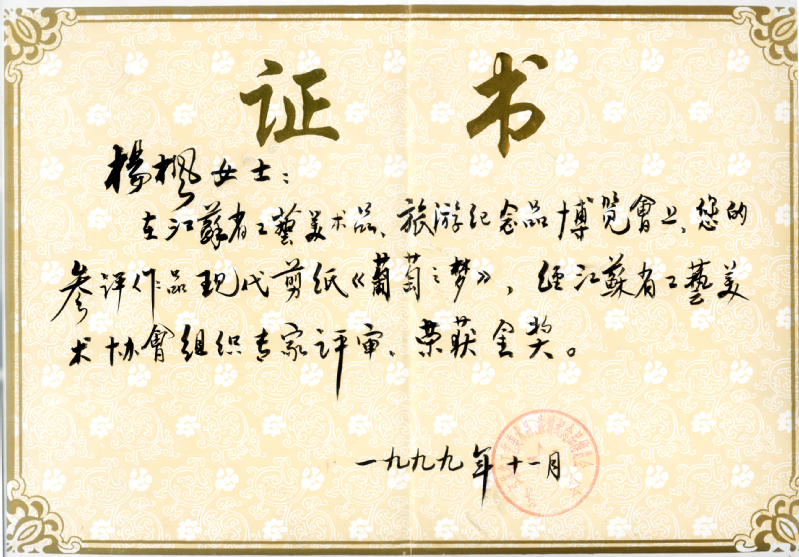 证书
楊楓女士：
在江蘇省工藝美术品、旅游纪念品博览會上，您的
参评作品现代剪纸《葡萄之梦》，经江蘇省工藝美
术协會组织专家评审、荣获金奖。
一九九九年十一月